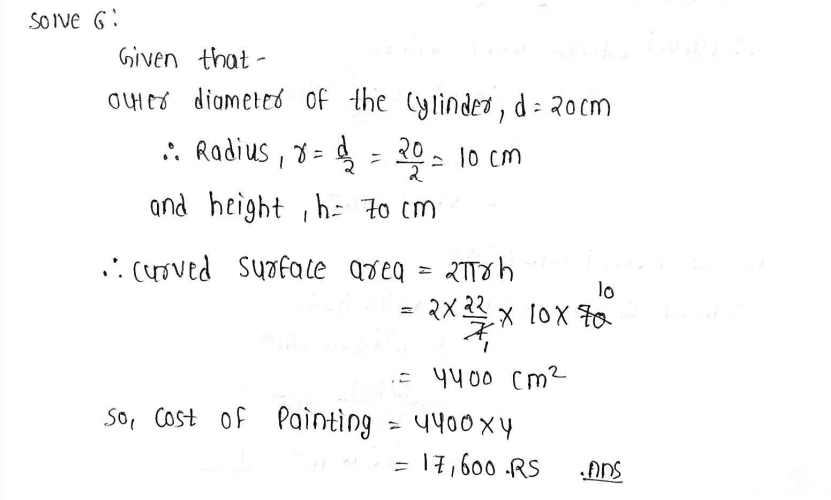 Solve 6:
Given that -
outer diameter of the cylinder, d = 20cm
∴ Radius, r = d/2 = 20/2 = 10 cm
and height, h = 70 cm
∴ curved surface area = 2πrh
= 2 × 22/7 × 10 × 70 10
1
= 4400 cm²
So, cost of Painting = 4400 × 4
= 17,600 .RS .Ans